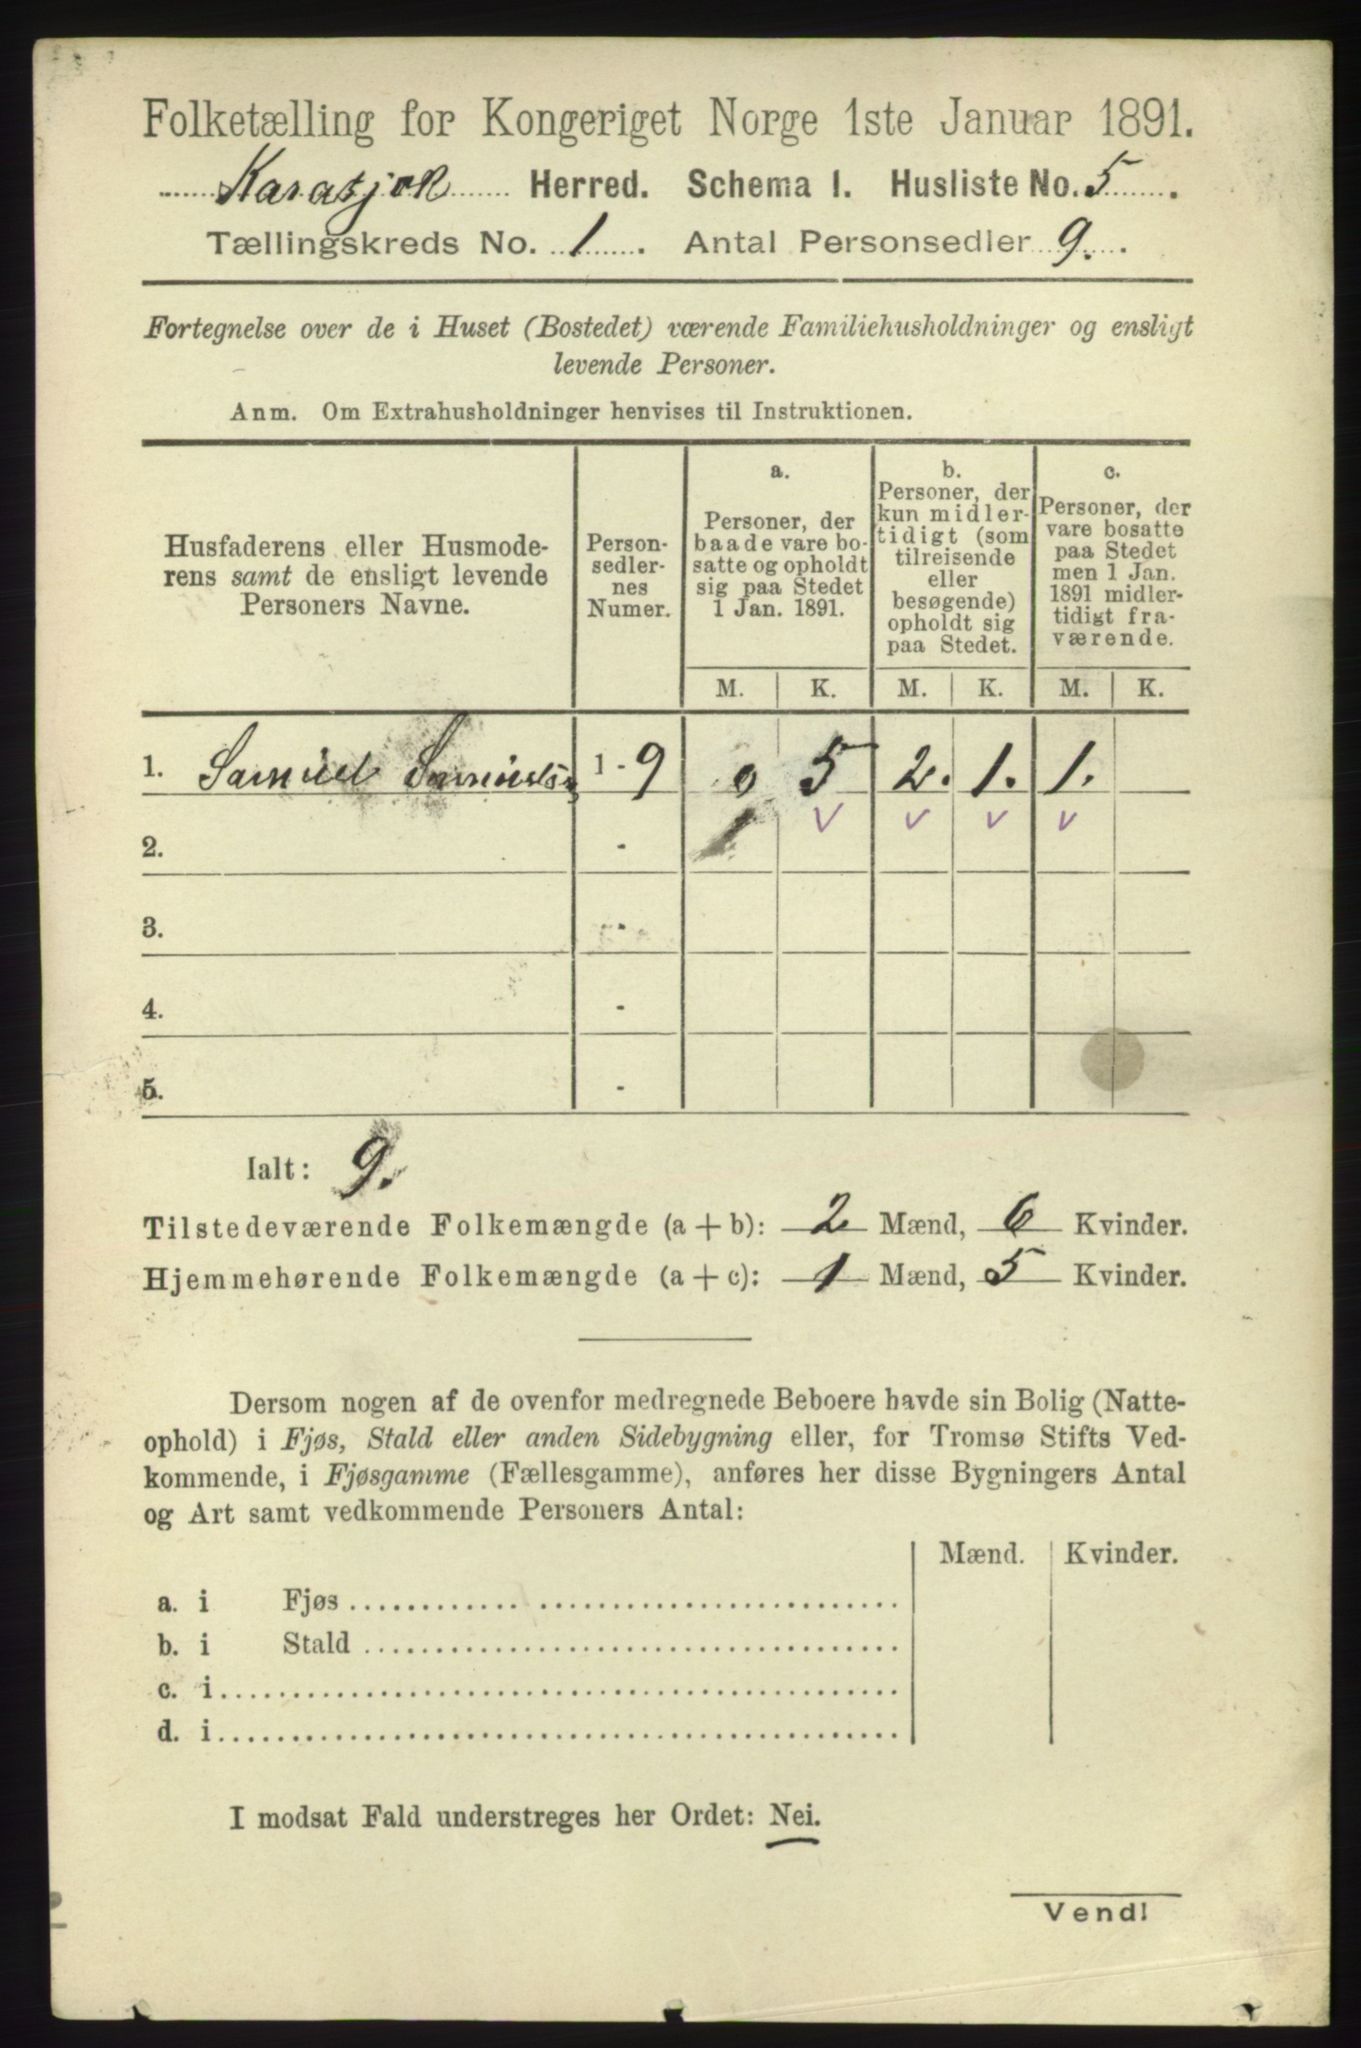 Folketælling for Kongeriget Norge 1ste Januar 1891.
Karasjok Herred. Schema I. Husliste No. 5.
Tællingskreds No. 1. Antal Personsedler 9.
Fortegnelse over de i Huset (Bostedet) værende Familiehusholdninger og ensligt
levende Personer.
Anm. Om Extrahusholdninger henvises til Instruktionen.
Husfaderens eller Husmode-
rens samt de ensligt levende
Personers Navne.
Person-
sedler-
nes
Numer.
a.
Personer, der
baade vare bo-
satte og opholdt
sig paa Stedet
1 Jan. 1891.
b.
Personer, der
kun midler-
tidigt (som
tilreisende
eller
besøgende)
opholdt sig
paa Stedet.
c.
Personer, der
vare bosatte
paa Stedet
men 1 Jan.
1891 midler-
tidigt fra-
værende.
M. K. M. K. M. K.
1. Samuel Samuelsen 1 - 9 0 5 2. 1. 1.
2. - 1 v v v v
3. -
4. -
5. -
Ialt: 9.
Tilstedeværende Folkemængde (a + b): 2 Mænd, 6 Kvinder.
Hjemmehørende Folkemængde (a + c): 1 Mænd, 5 Kvinder.
Dersom nogen af de ovenfor medregnede Beboere havde sin Bolig (Natte-
ophold) i Fjøs, Stald eller anden Sidebygning eller, for Tromsø Stifts Ved-
kommende, i Fjøsgamme (Fællesgamme), anføres her disse Bygningers Antal
og Art samt vedkommende Personers Antal:
Mænd. Kvinder.
a. i Fjøs
b. i Stald
c. i
d. i
I modsat Fald understreges her Ordet: Nei.
Vend!